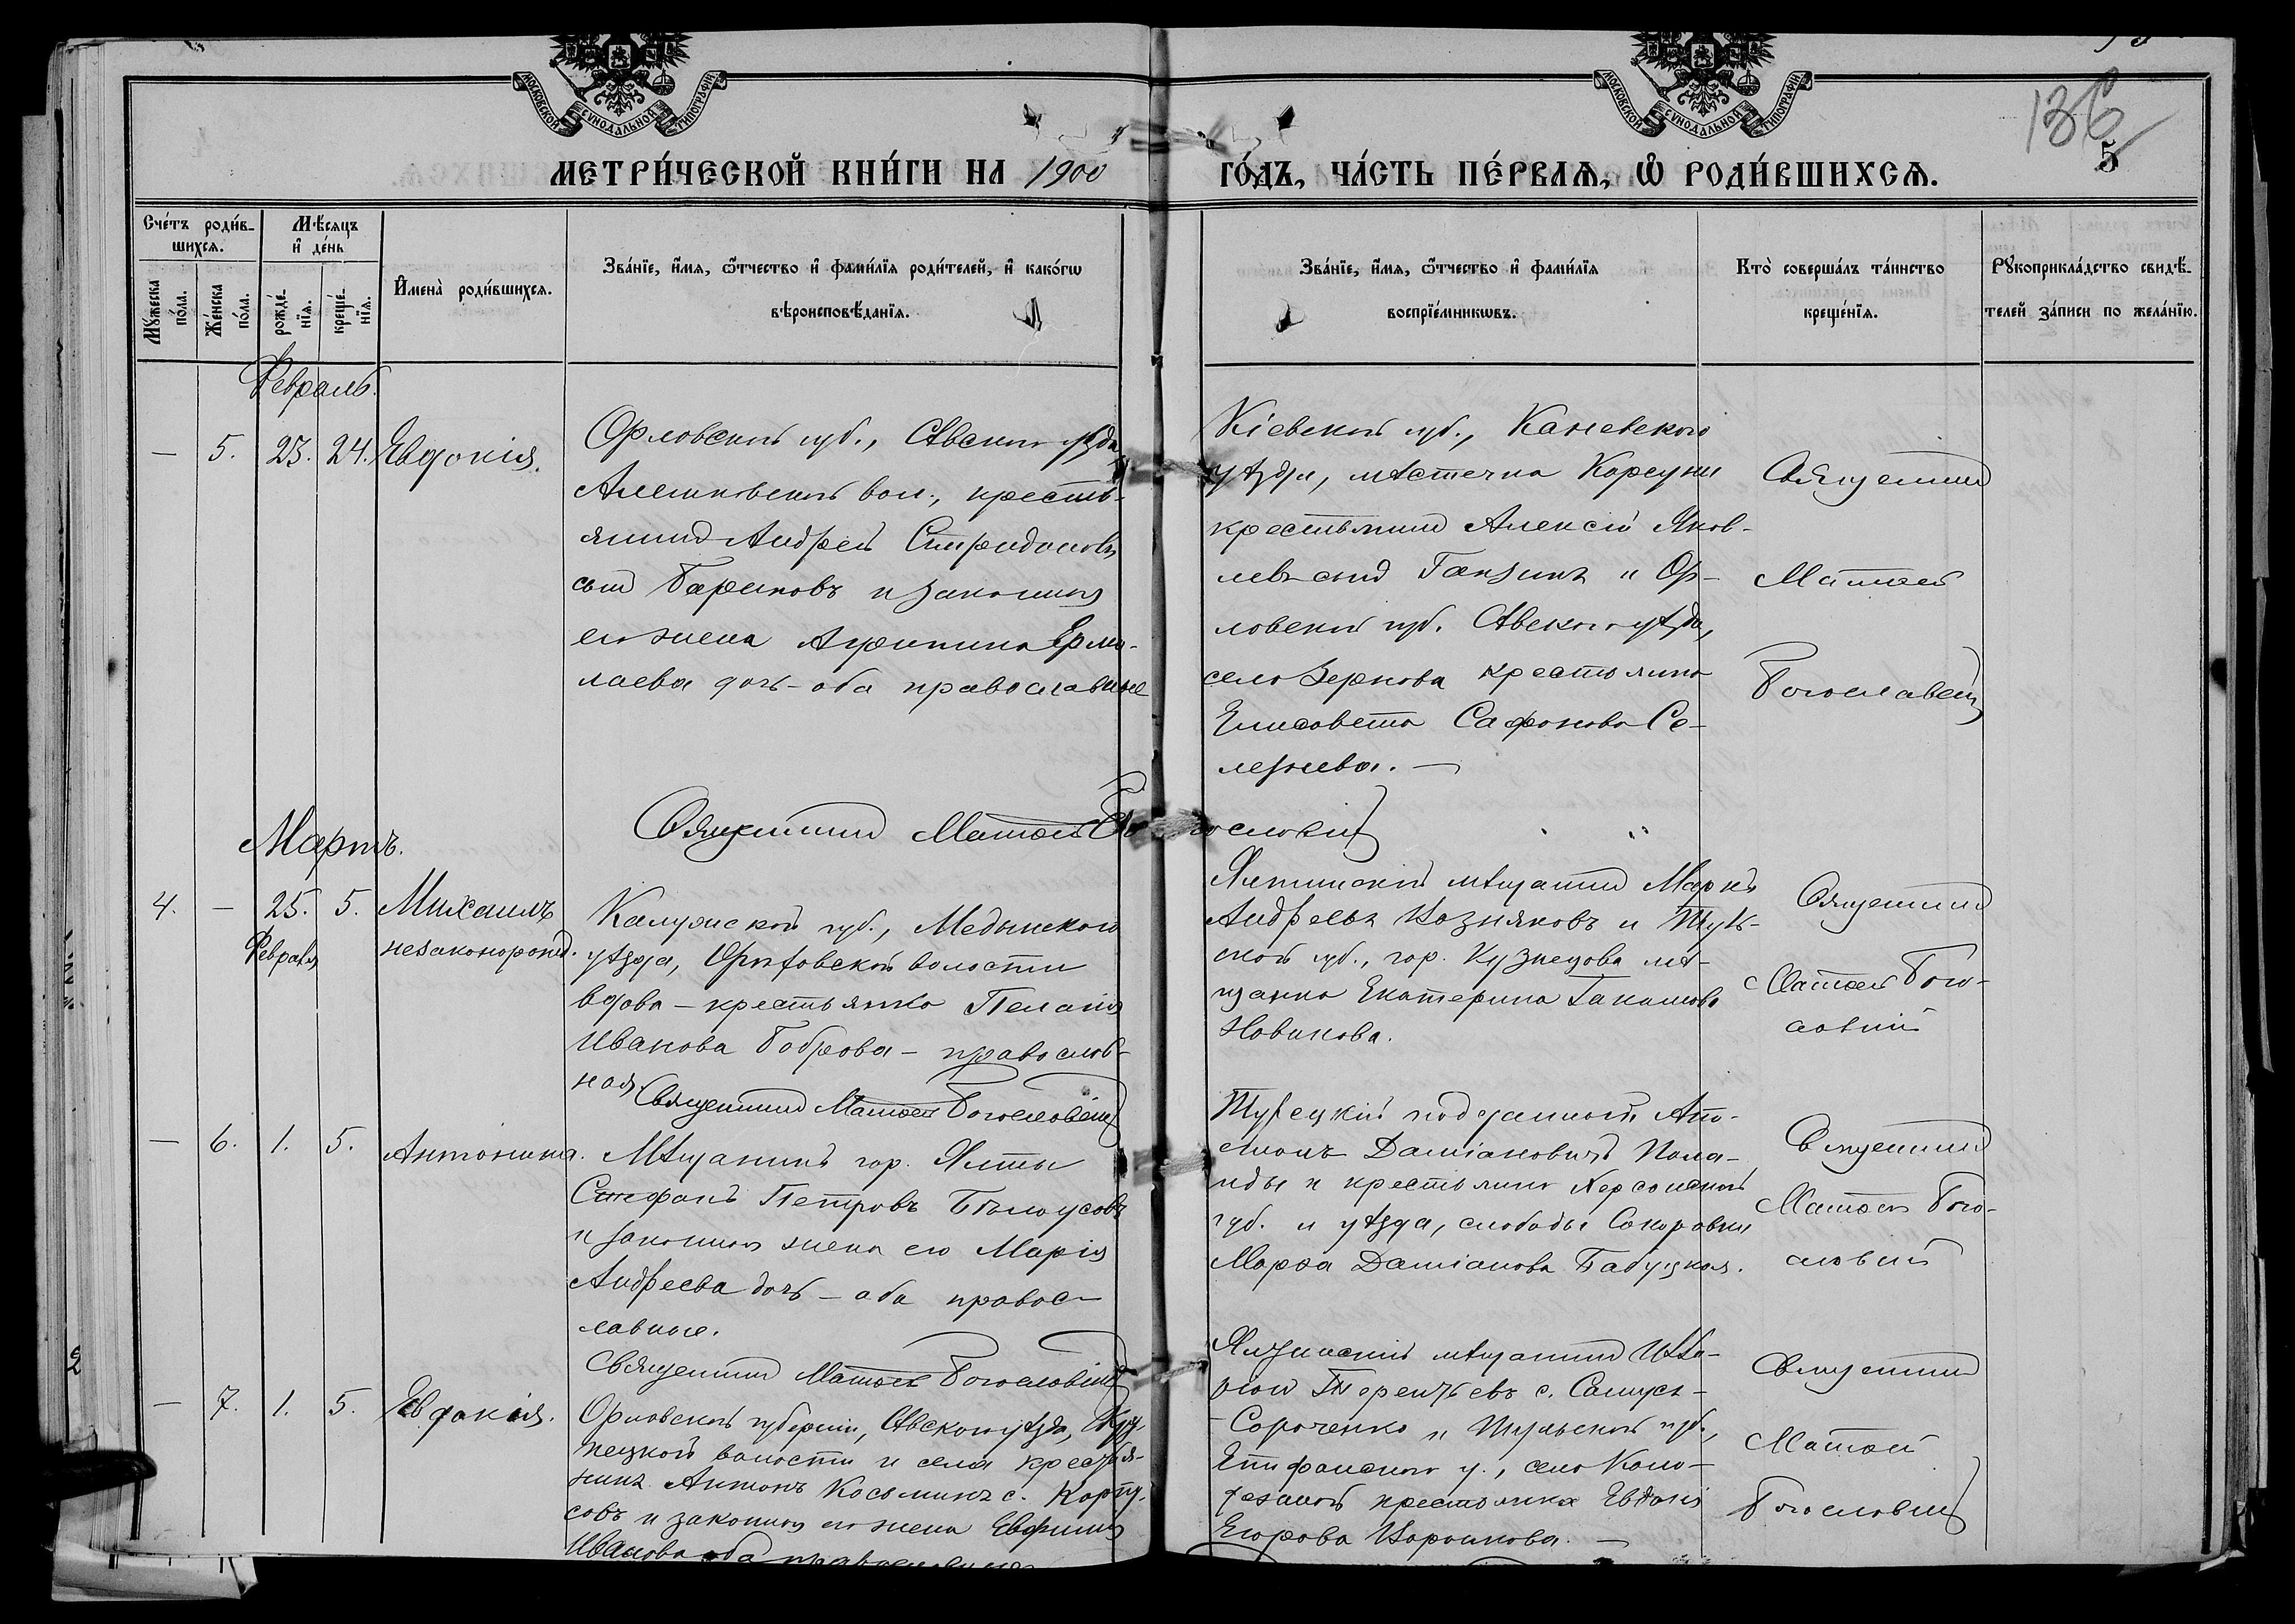 МОСКОВСКОЙ СѴНОДАЛЬНОЙ ТИПОГРАФІИ
МОСКОВСКОЙ СѴНОДАЛЬНОЙ ТИПОГРАФІИ
136
5
МЕТРИ́ЧЕСКОЙ КНИ́ГИ НА 1900 ГО́ДЪ, ЧА́СТЬ ПЕ́РВАѦ, Ѡ҆ РОДИ́ВШИХСѦ.
Сче́тъ роди́в-
шихсѧ.
Мꙋ́жеска по́ла.
Же́нска по́ла.
Мѣ́сѧцъ
и҆ де́нь
рожде́-
нїѧ.
креще́-
нїѧ.
И҆мена̀ роди́вшихсѧ.
Зва́нїе, и҆́мѧ, ѻ҆́тчество и҆ фами́лїѧ роди́телей, и҆ како́гѡ
вѣроисповѣ́данїѧ.
Зва́нїе, и҆́мѧ, ѻ҆́тчество и҆ фами́лїѧ
воспрїе́мникѡвъ.
Кто̀ соверша́лъ та́инство
креще́нїѧ.
Рꙋкоприкла́дство свидѣ́-
телей за́писи по жела́нїю.
Февраль.
— 5. 23. 24. Евдокія.
Орловской губ., Сѣвскаго уѣзда,
Алешковской вол., кресть-
янинъ Андрей Спиридоновъ
сынъ Бариковъ и законная
его жена Агрипина Ермо-
лаева дочь - оба православные
Кіевской губ., Каневскаго
уѣзда, мѣстечка Корсуни
крестьянинъ Алексій Яков-
левъ сынъ Ганзинъ и Ор-
ловской губ. Сѣвскаго уѣзда,
село Зернова крестьянка
Елисавета Сафонова Се-
лезнева. —
Священникъ
Матѳей
Богословскій
Священникъ Матѳей Богословскій
Мартъ.
4. — 25. 5. Михаилъ
Февраля
незаконорожд.
Калужской губ., Медынскаго
уѣзда, волости
вдова - крестьянка Пелагія
Иванова Боброва - православ-
ная.
Священникъ Матѳей Богословскій
Ялтинскій мѣщанинъ Маркъ
Андреевъ Возняковъ и Туль-
ской губ., гор. мѣ-
щанка Екатерина
Новикова.
Священникъ
Матѳей Бого-
словскій
— 6. 1. 5. Антонина.
Мѣщанинъ гор. Ялты
Стефанъ Петровъ Бѣлоусовъ
и законная жена его Марія
Андреева дочь - оба правос-
лавные.
Священникъ Матѳей Богословскій
Турецкій подданный
Даміановичъ
и крестьянка Херсонской
губ. и уѣзда, слободы
Марѳа Даміанова Бабуцкая.
Священникъ
Матѳей Бого-
словскій
— 7. 1. 5. Евдокія.
Орловской губерніи, Сѣвскаго уѣзда,
волости и села крестья-
нинъ Антонъ Косьминъ с.
и законная его жена Евфимія
Иванова оба православные
Ялтинскій мѣщанинъ
Терентьевъ с.
Сороченко и Тульской губ.,
Епифанскаго у., село
крестьянка Евдокія
Егорова Воронкова. —
Священникъ
Матѳей
Богословскій
2